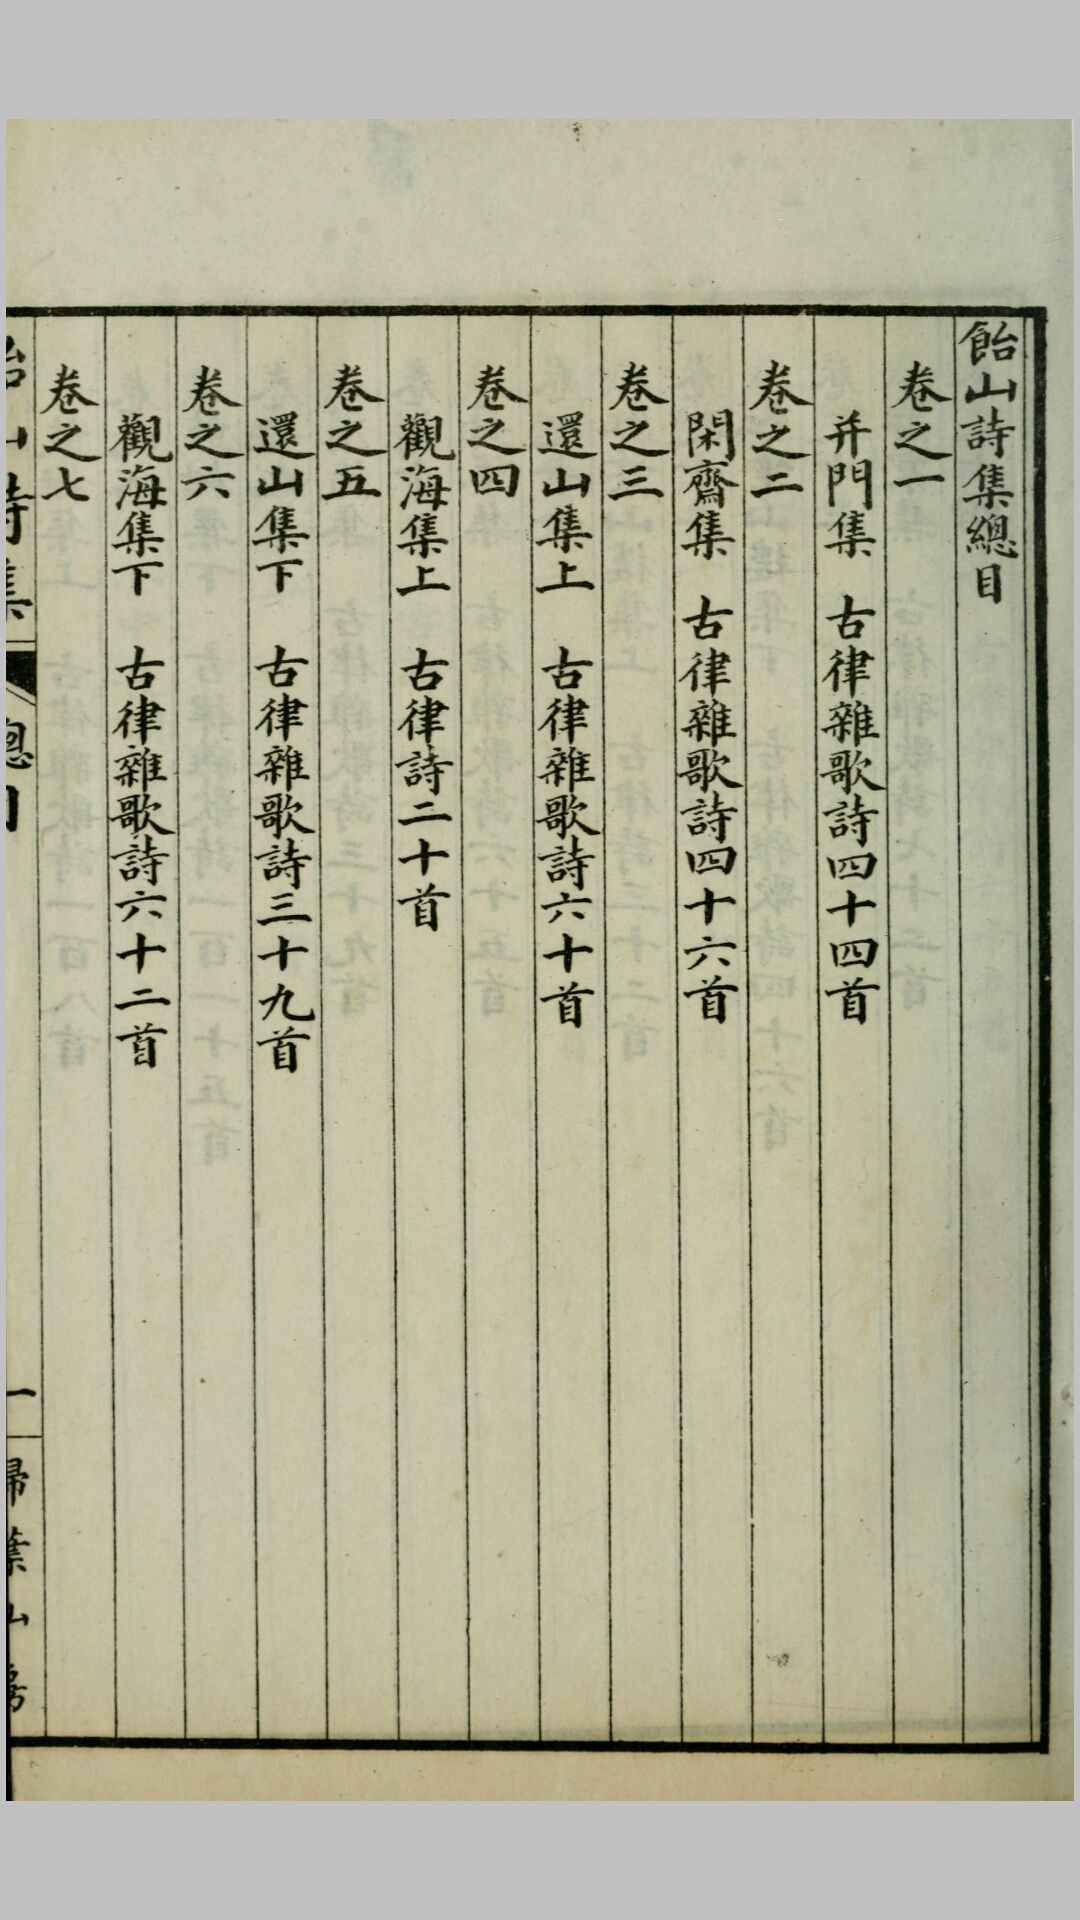 飴山詩集總目
卷之一
并門集　古律雜歌詩四十四首
卷之二
閑齋集　古律雜歌詩四十六首
卷之三
還山集上　古律雜歌詩六十首
卷之四
觀海集上　古律詩二十首
卷之五
還山集下　古律雜歌詩三十九首
卷之六
觀海集下　古律雜歌詩六十二首
卷之七
飴山詩集　總目　一　掃葉山房